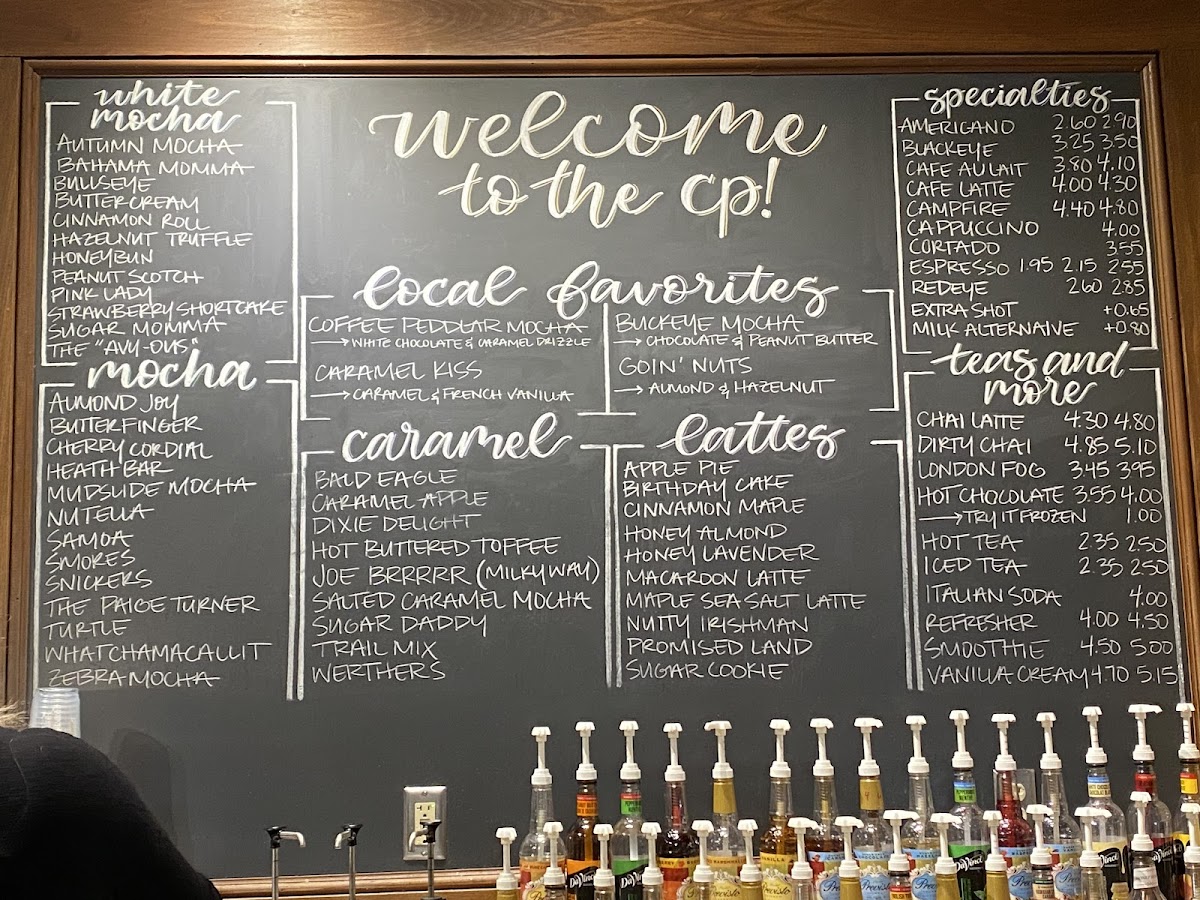 welcome
to the cp!
white
mocha
AUTUMN MOCHA
BAHAMA MOMMA
BULLSEYE
BUTTERCREAM
CINNAMON ROLL
HAZELNUT TRUFFLE
HONEYBUN
PEANUT SCOTCH
PINK LADY
STRAWBERRY SHORTCAKE
SUGAR MOMMA
THE "AVY-OUS"
mocha
ALMOND JOY
BUTTERFINGER
CHERRY CORDIAL
HEATH BAR
MUDSLIDE MOCHA
NUTELLA
SAMOA
SMORES
SNICKERS
THE PAIGE TURNER
TURTLE
WHATCHAMACALLIT
ZEBRA MOCHA
local favorites
COFFEE PEDDLAR MOCHA
→ WHITE CHOCOLATE & CARAMEL DRIZZLE
CARAMEL KISS
→ CARAMEL & FRENCH VANILLA
BUCKEYE MOCHA
→ CHOCOLATE & PEANUT BUTTER
GOIN' NUTS
→ ALMOND & HAZELNUT
caramel
BALD EAGLE
CARAMEL APPLE
DIXIE DELIGHT
HOT BUTTERED TOFFEE
JOE BRRRRR (MILKY WAY)
SALTED CARAMEL MOCHA
SUGAR DADDY
TRAIL MIX
WERTHERS
lattes
APPLE PIE
BIRTHDAY CAKE
CINNAMON MAPLE
HONEY ALMOND
HONEY LAVENDER
MACAROON LATTE
MAPLE SEA SALT LATTE
NUTTY IRISHMAN
PROMISED LAND
SUGAR COOKIE
specialties
AMERICANO 2.60 2.90
BLACKEYE 3.25 3.50
CAFE AU LAIT 3.80 4.10
CAFE LATTE 4.00 4.30
CAMPFIRE 4.40 4.80
CAPPUCCINO 4.00
CORTADO 3.55
ESPRESSO 1.95 2.15 2.55
REDEYE 2.60 2.85
EXTRA SHOT +0.65
MILK ALTERNATIVE +0.80
teas and
more
CHAI LATTE 4.30 4.80
DIRTY CHAI 4.85 5.10
LONDON FOG 3.45 3.95
HOT CHOCOLATE 3.55 4.00
→ TRY IT FROZEN 1.00
HOT TEA 2.35 2.50
ICED TEA 2.35 2.50
ITALIAN SODA 4.00
REFRESHER 4.00 4.50
SMOOTHIE 4.50 5.00
VANILLA CREAM 4.70 5.15
DaVinci
DaVinci
VANILLA
Previsto
Previsto
DaVinci
DaVinci